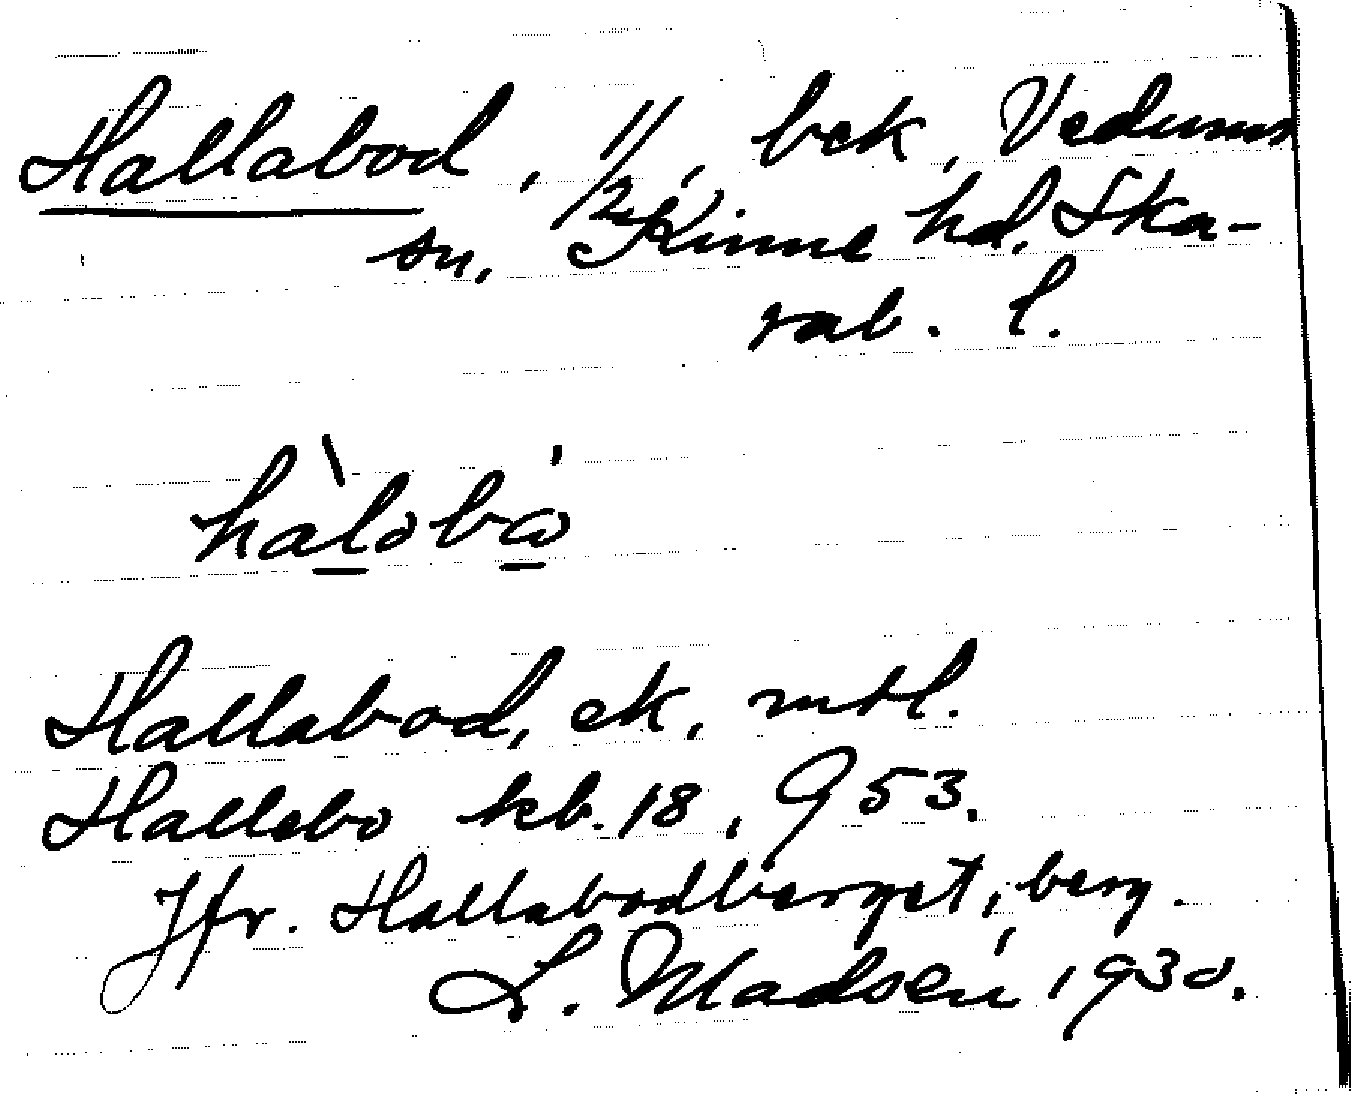 Hallabod, 1/2, bek, Vedums
sn, Kinne hd. Ska-
rab. l.
hàlobà
Hallabod, ek, mtl.
Hallebo kb. 18, 953.
Jfr. Hallabodberget, berg.
L. Madsén 1930.